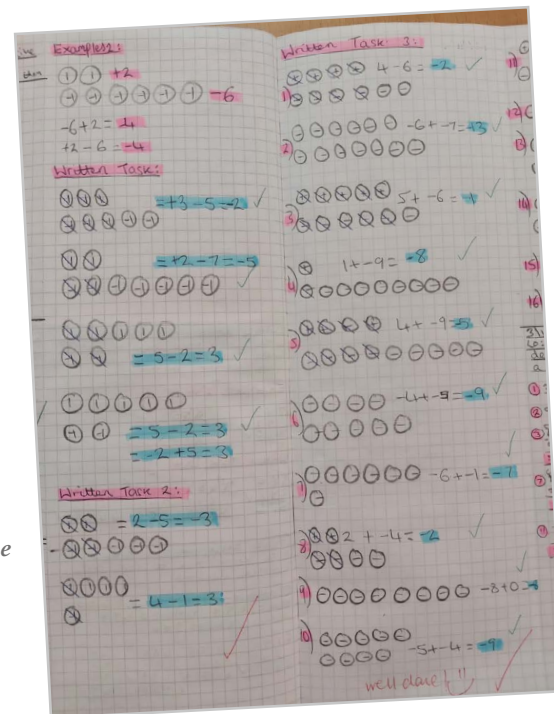 Examples:
+2
-6
-6+2=-4
+2-6=-4
Written Task:
=+3-5=-2
=+2-7=-5
=5-2=3
=5-2=3
=-2+5=3
Written Task 2:
=2-5=-3
=4-1=3
Written Task 3:
1) 4-6=-2
2) -6+-7=
3) 5+-6=
4) 1+-9=-8
5) 4+-9=-5
6) -4+-5=-9
7) -6+-1=-7
8) 2+-4=-2
9) -8+0=
10) -5+-4=-9
well done!!
11)
12)
13)
14)
15)
16)
e